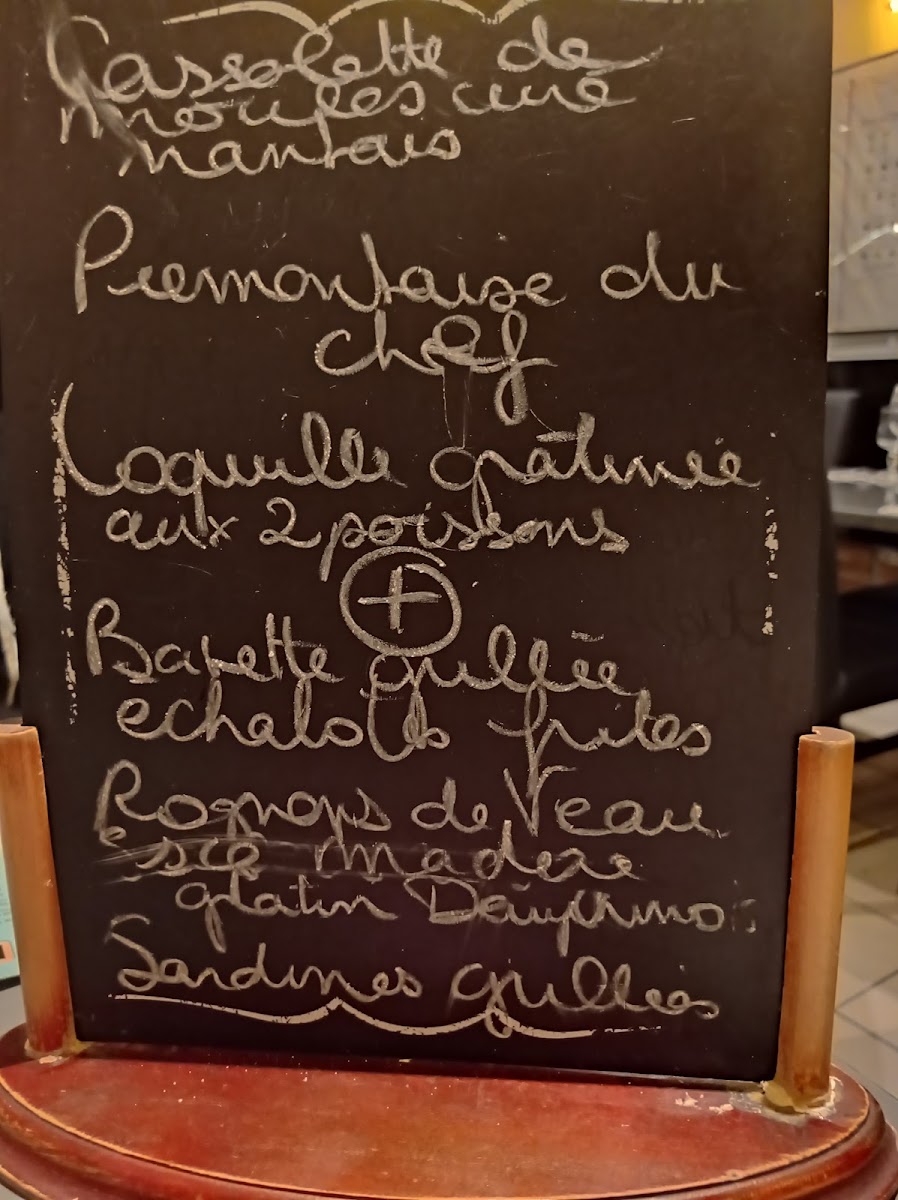 Cassolette de
moules curé
nantais
Piemontaise du
chef
Coquille gratinée
aux 2 poissons
+
Bavette grillée
echalotes frites
Rognons de Veau
sce madère
gratin Dauphinois
Sardines grillées